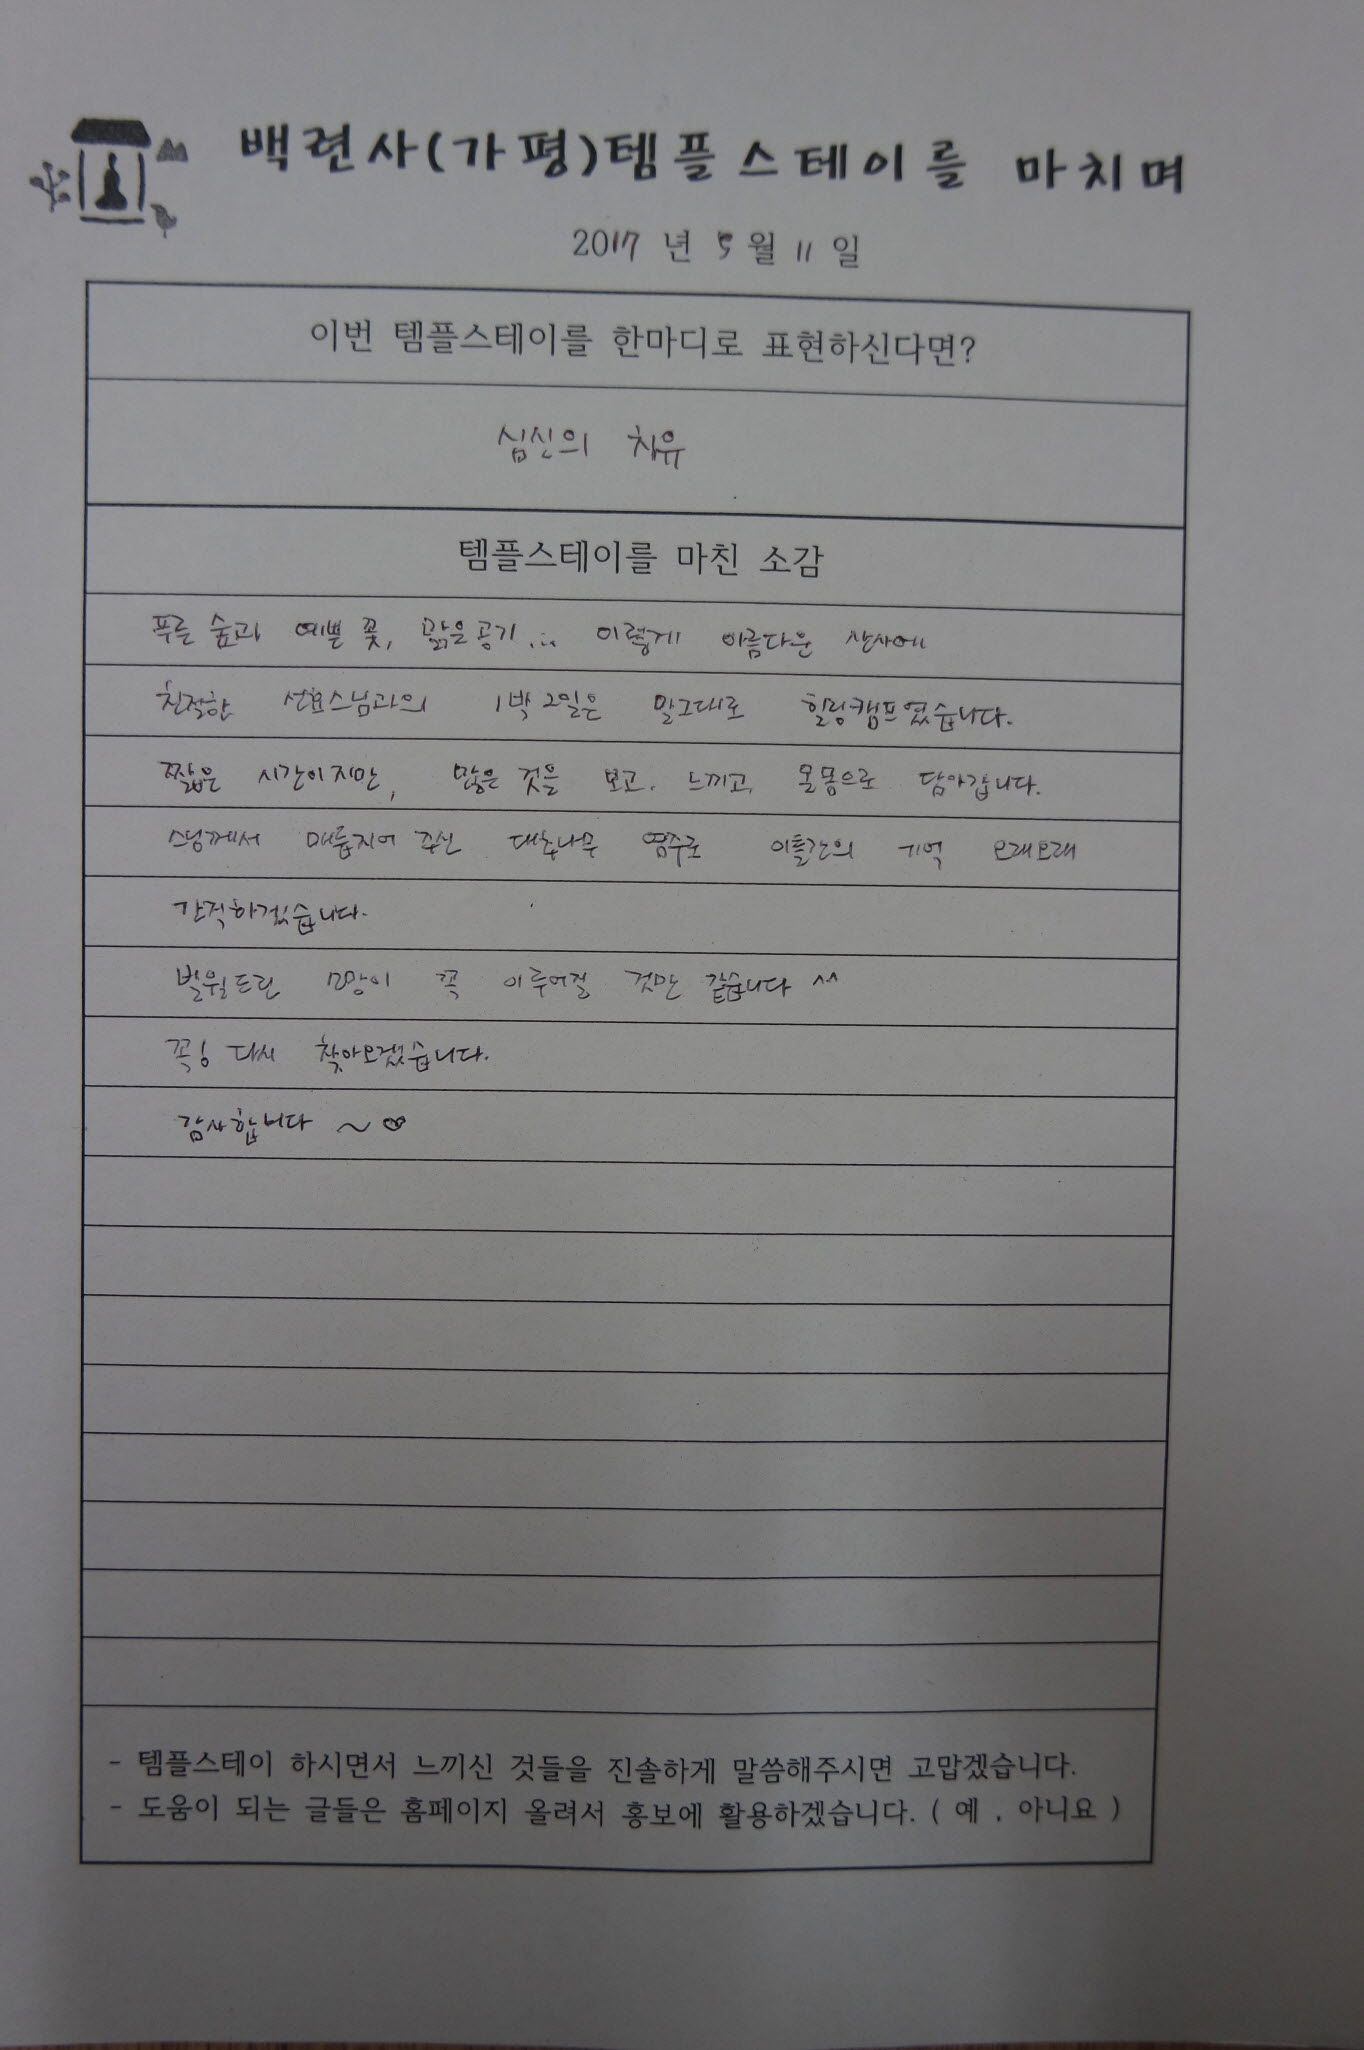 백련사(가평)템플스테이를 마치며
2017 년 5 월 11 일
이번 템플스테이를 한마디로 표현하신다면?
심신의 치유
템플스테이를 마친 소감
푸른 숲과 예쁜 꽃, 맑은공기... 이렇게 아름다운 산사에
친절한 선효스님과의 1박2일은 말그대로 힐링캠프였습니다.
짧은 시간이지만, 많은 것을 보고, 느끼고, 온몸으로 담아갑니다.
스님께서 매듭지어 주신 대추나무 염주로 이틀간의 기억 오래오래
간직하겠습니다.
빌원드린 소망이 꼭 이루어질 것만 같습니다 ^^
꼭! 다시 찾아오겠습니다.
감사합니다 ~♡
- 템플스테이 하시면서 느끼신 것들을 진솔하게 말씀해주시면 고맙겠습니다.
- 도움이 되는 글들은 홈페이지 올려서 홍보에 활용하겠습니다. ( 예 , 아니요 )